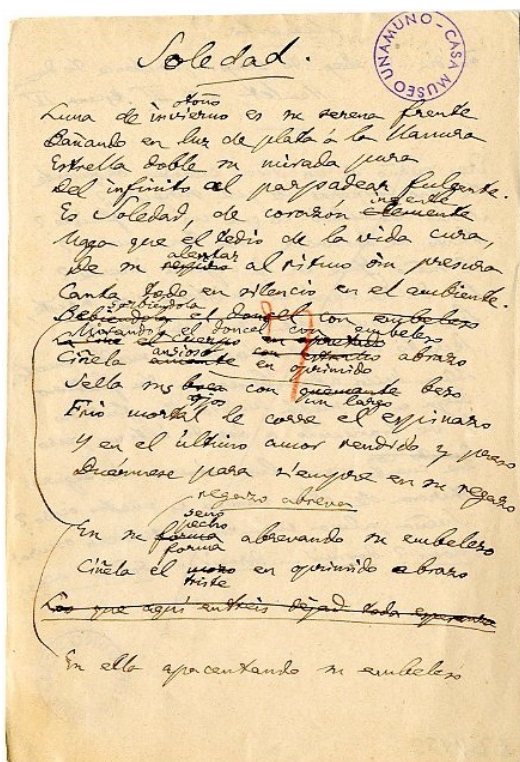 Soledad.
CASA MUSEO UNAMUNO
otoño
Luna de invierno es su serena frente
Bañando en luz de plata á la llanura
Estrella doble su mirada pura
Del infinito al parpadear fulgente.
ingente
Es Soledad, de corazón clemente
Maga que el tedio de la vida cura,
alentar
De su al ritmo sin presura
Canta todo en silencio en el ambiente.
sorbiéndola
Bebiendo el doncel con embeleso
Mirando el doncel con embeleso
el cuerpo en apretado
Cíñela ansioso con abrazo
amante en oprimido
Sella sus boca con quemante beso
ojos un largo
Frio mortal le corre el espinazo
Y en el último amor rendido y preso
Duérmese para siempre en su regazo
regazo abreva
seno
pecho
En su forma abrevando su embeleso
forma
Cíñela el mozo en oprimido abrazo
triste
Los que aquí entreis dejad toda esperanza
En ella apacentando su embeleso